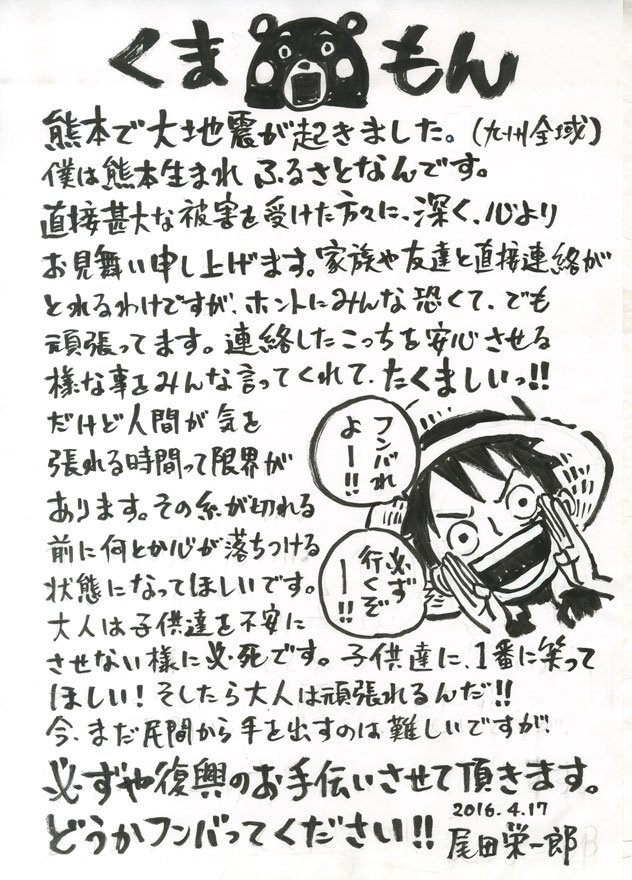 くま もん
熊本で大地震が起きました。(九州全域)
僕は熊本生まれ ふるさとなんです。
直接甚大な被害を受けた方々に、深く、心より
お見舞い申し上げます。家族や友達と直接連絡が
とれるわけですが、ホントにみんな恐くて、でも
頑張ってます。連絡したこっちを安心させる
様な事をみんな言ってくれて、たくましいっ!!
だけど人間が気を
張れる時間って限界が
あります。その糸が切れる
前に何とか心が落ちつける
状態になってほしいです。
大人は子供達を不安に
させない様に必死です。子供達に、1番に笑って
ほしい!そしたら大人は頑張れるんだ!!
今、まだ民間から手を出すのは難しいですが、
必ずや復興のお手伝いさせて頂きます。
どうかフンバってください!!
フンバれ
よー!!
必ず
行くぞ
ー!!
2016.4.17
尾田栄一郎